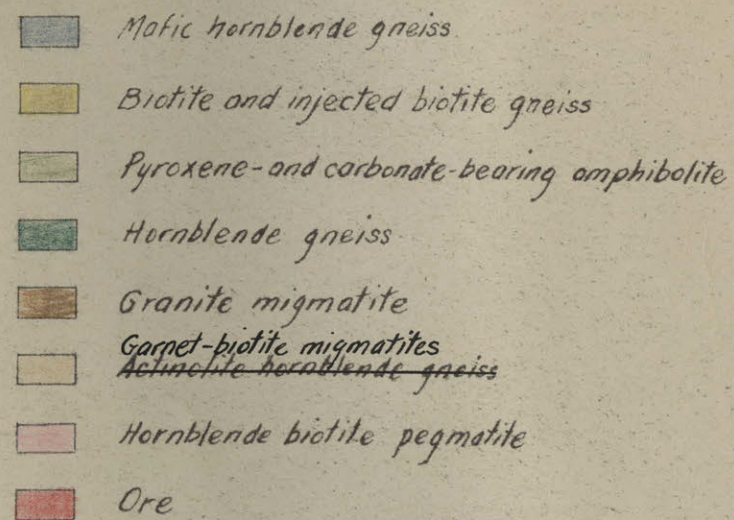 Mafic hornblende gneiss
Biotite and injected biotite gneiss
Pyroxene- and carbonate-bearing amphibolite
Hornblende gneiss
Granite migmatite
Garnet-biotite migmatites
Actinolite hornblende gneiss
Hornblende biotite pegmatite
Ore